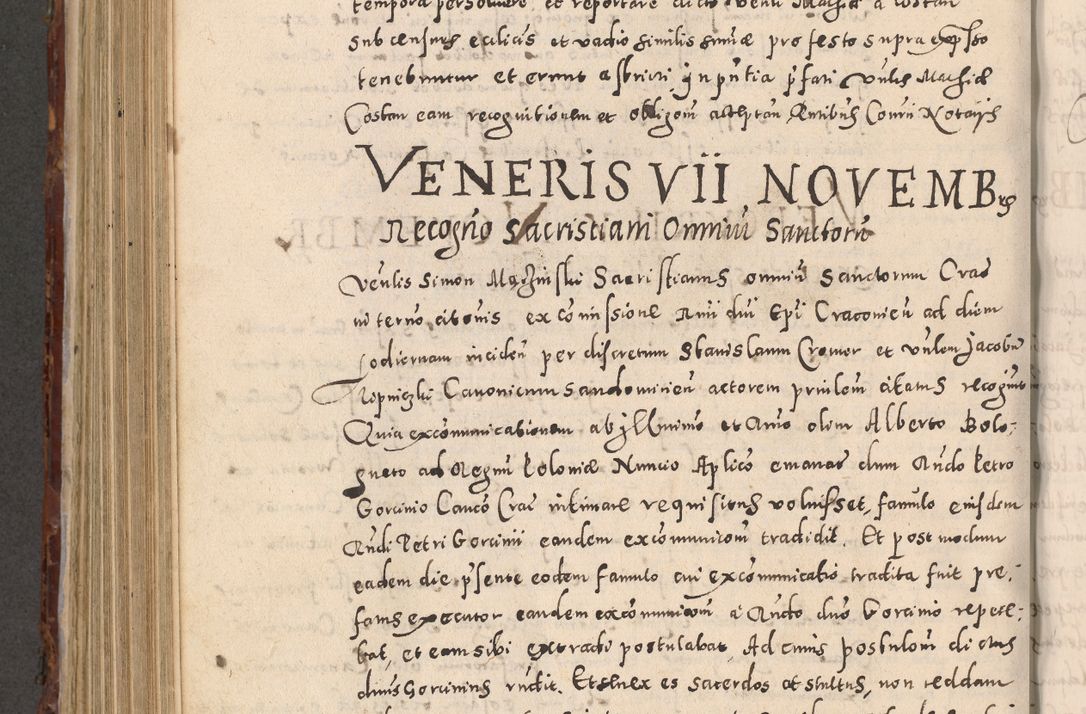 tempora persolvere et reportare dicto venli Mathiæ a Costan
sub censuris ecclīcis et vadio similis sumæ pro festo supra expsso
tenebuntur et erunt astricti in pn̄tia p̄fati vnlis Mathiæ
Costan eam recognitionem et obligōm acceptan̄ Quibus Coram Notarijs
VENERIS VII NOVEMBris
Recogn̄o Sacristiani Omniū Sanctorū
Venlis Simon Sacristianus omniū Sanctorum Crac
in termo citōnis ex cōmissione Rmi dnī Epī Cracovien̄ ad diem
hodiernam inciden̄ per discretum Stanislaum Cromer et vnlem Jacobū
Canonicum Sandomirien̄ actorem principlem citatus recognit
Quia excōmunicationem ab Jllmimo et Rmo olim Alberto Bolo-
gneto ad Regnū Poloniæ Nuncio Aplico emanat dum Rndo Petro
Gorcinio Canco Crac intimare requisitus voluisset, famulo eiusdem
Rndi Petri Gorcinii eandem excōmunicōm tradidit. Et post modum
eadem die p̄sente eodem famulo cui excōmunicatio tradita fuit pre-
fatus executor eandem excōmunicōm a Rndo dno Gorcinio repete-
bat, et eam sibi extradi postulabat, Ad cuius postulōm dictus
dnus Gorcinius rndit. Et senex es sacerdos et stultus, non reddam